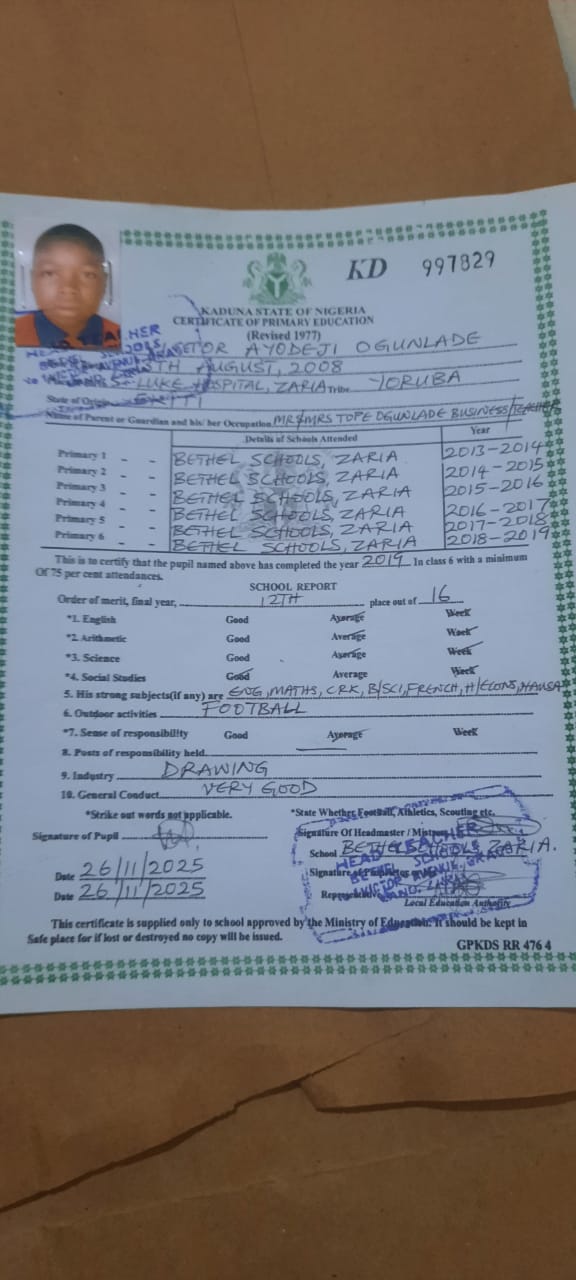 KD 997829
KADUNA STATE OF NIGERIA
CERTIFICATE OF PRIMARY EDUCATION
(Revised 1977)
AYODEJI OGUNLADE
AUGUST, 2008
LUKE HOSPITAL, ZARIA Tribe YORUBA
State of Origin EKITI
Name of Parent or Guardian and his/ her Occupation MR & MRS TOPE OGUNLADE BUSINESS/TEACHER
Details of Schools Attended Year
Primary 1 - - BETHEL SCHOOLS, ZARIA 2013-2014
Primary 2 - - BETHEL SCHOOLS, ZARIA 2014-2015
Primary 3 - - BETHEL SCHOOLS, ZARIA 2015-2016
Primary 4 - - BETHEL SCHOOLS, ZARIA 2016-2017
Primary 5 - - BETHEL SCHOOLS, ZARIA 2017-2018
Primary 6 - - BETHEL SCHOOLS, ZARIA 2018-2019
This is to certify that the pupil named above has completed the year 2019 In class 6 with a minimum
Of 75 per cent attendances.
SCHOOL REPORT
Order of merit, final year, 12TH place out of 16
*1. English Good Average Week
*2. Arithmetic Good Average Week
*3. Science Good Average Week
*4. Social Studies Good Average Week
5. His strong subjects(if any) are ENG, MATHS, CRK, B/SCI, FRENCH, H/ECONS, HAUSA
6. Outdoor activities FOOTBALL
*7. Sense of responsibility Good Average Week
8. Posts of responsibility held.
9. Industry DRAWING
10. General Conduct VERY GOOD
*Strike out words not applicable. *State Whether Football, Athletics, Scouting etc.
Signature of Pupil Signature Of Headmaster / Mistress
School BETHEL SCHOOLS ZARIA.
HEAD TEACHER
BETHEL SCHOOLS
Date 26/11/2025 Signature of Proprietor
Date 26/11/2025 Representative
Local Education Authority
This certificate is supplied only to school approved by the Ministry of Education. It should be kept in
Safe place for if lost or destroyed no copy will be issued.
GPKDS RR 476 4